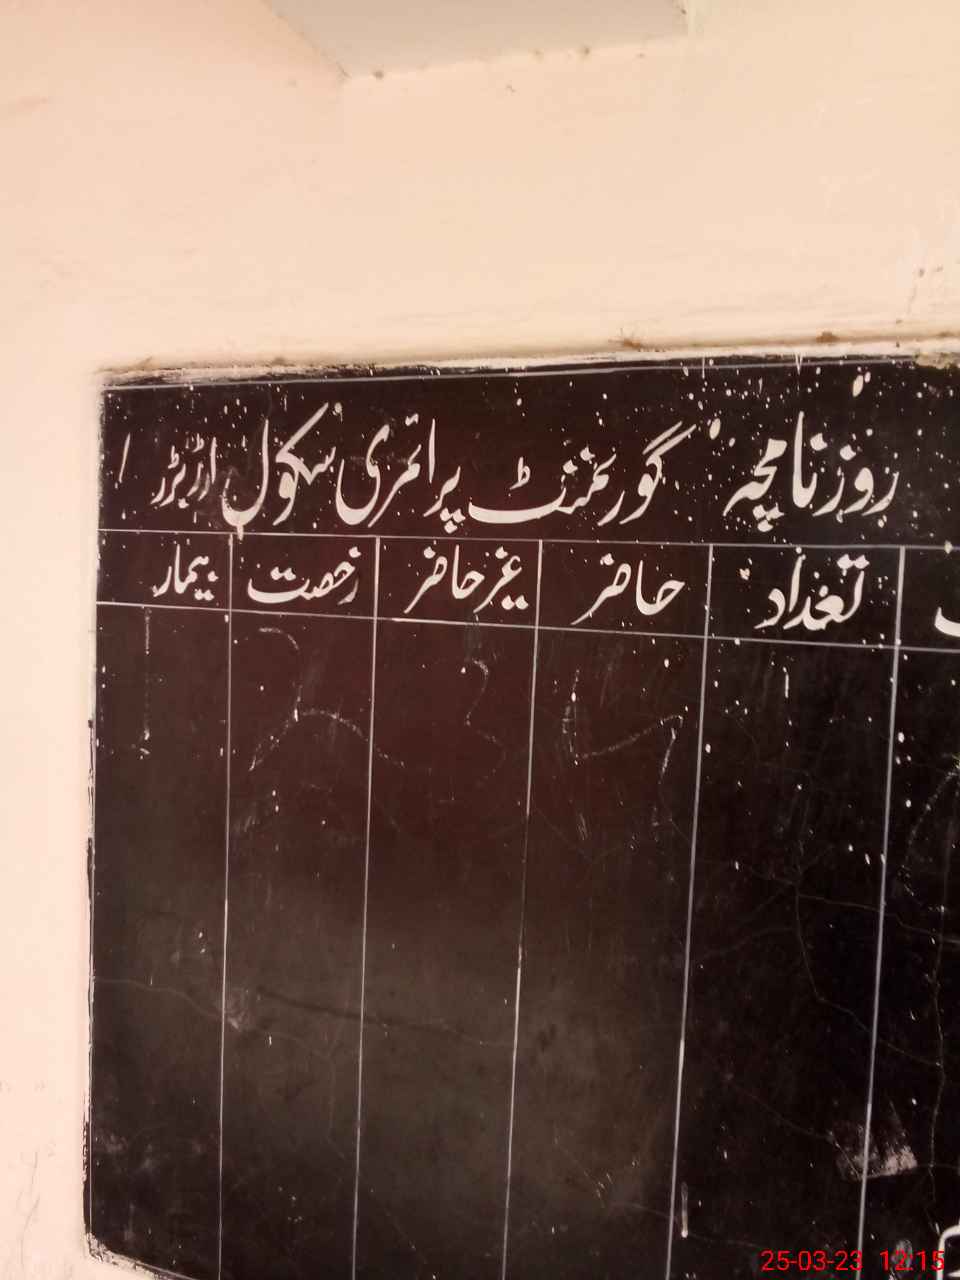 روزنامچہ گورنمنٹ پرائمری سکول
تعداد حاضر غیر حاضر رخصت بیمار
25-03-23 12:15